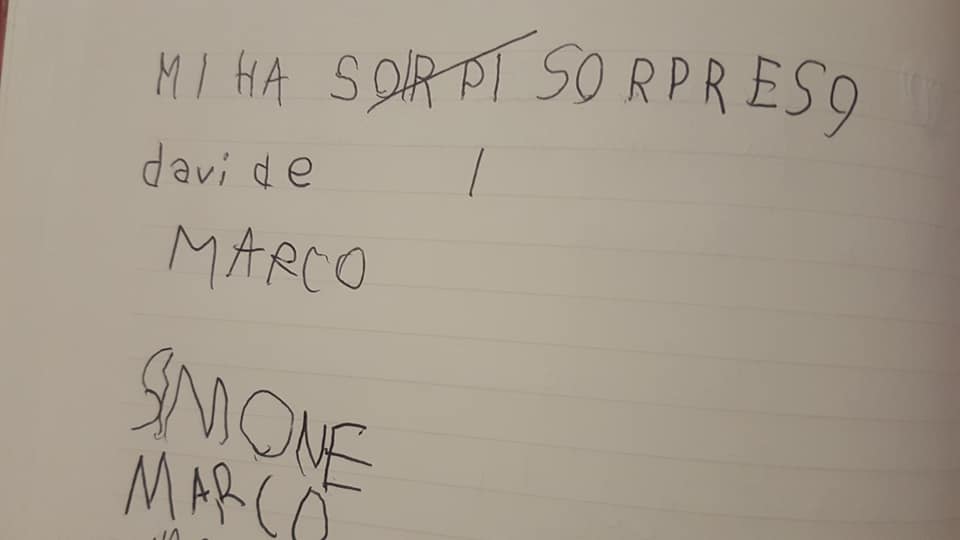 MI HA SORPI SORPRESO
davide /
MARCO
SIMONE
MARCO